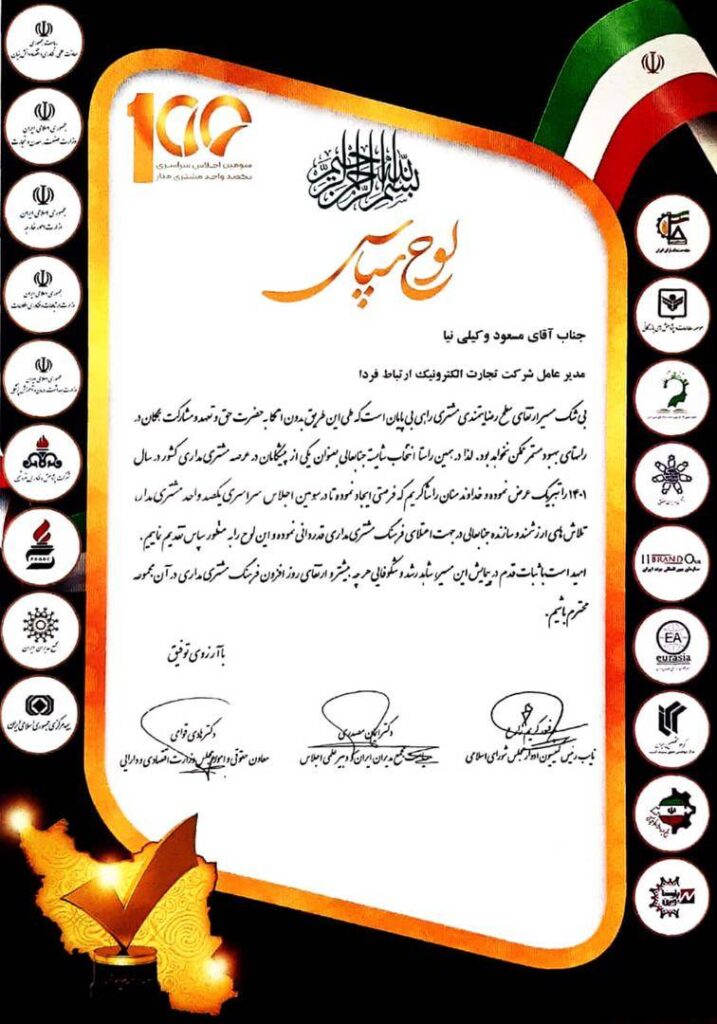 ریاست جمهوری
معاونت علمی، فناوری و اقتصاد دانش بنیان
جمهوری اسلامی ایران
وزارت صنعت، معدن و تجارت
جمهوری اسلامی ایران
وزارت امور خارجه
جمهوری اسلامی ایران
وزارت ارتباطات و فناوری اطلاعات
جمهوری اسلامی ایران
وزارت بهداشت، درمان و آموزش پزشکی
شرکت پژوهش و فناوری پتروشیمی
مجمع مدیران ایران
بیمه مرکزی جمهوری اسلامی ایران
100
سومین اجلاس سراسری
یکصد واحد مشتری مدار
بسم الله الرحمن الرحیم
لوح سپاس
جناب آقای مسعود وکیلی نیا
مدیر عامل شرکت تجارت الکترونیک ارتباط فردا
بی شک مسیر ارتقای سطح رضایتمندی مشتری راهی بی پایان است که طی این طریق بدون اتکا به حضرت حق و تعهد و مشارکت همگان در
راستای بهبود مستمر ممکن نخواهد بود. لذا در همین راستا انتخاب شایسته جنابعالی بعنوان یکی از پیشگامان در عرصه مشتری مداری کشور در سال
۱۴۰۱ را تبریک عرض نموده و خداوند منان را شاکریم که فرصتی ایجاد نموده تا در سومین اجلاس سراسری یکصد واحد مشتری مدار،
تلاش های ارزشمند و سازنده جنابعالی در جهت اعتلای فرهنگ مشتری مداری قدردانی نموده و این لوح را به منظور سپاس تقدیم نماییم.
امید است با ثبات قدم در پیمایش این مسیر، شاهد رشد و شکوفایی هر چه بیشتر و ارتقای روز افزون فرهنگ مشتری مداری در آن مجموعه
محترم باشیم.
با آرزوی توفیق
غفور کریم
نایب رئیس کمیسیون ادوار مجلس شورای اسلامی
دکتر
مجمع مدیران ایران و دبیر علمی اجلاس
دکتر هادی قوامی
معاون حقوقی و امور مجلس وزارت اقتصادی و دارایی
موسسه مطالعات و پژوهش های بازرگانی
BRAND
سازمان بین المللی برند ایران
EA
eurasia